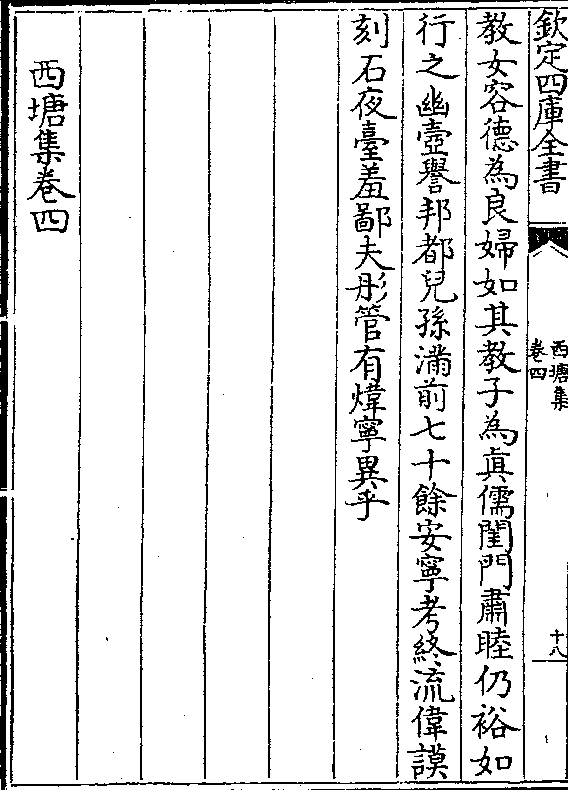 欽定四庫全書
西塘集
卷四
十八
教女容德為良婦如其教子為真儒閨門肅睦仍裕如
行之幽壺譽邦都兒孫滿前七十餘安寧考終流偉謨
刻石夜臺羞鄙夫彤管有煒寧異乎
西塘集卷四